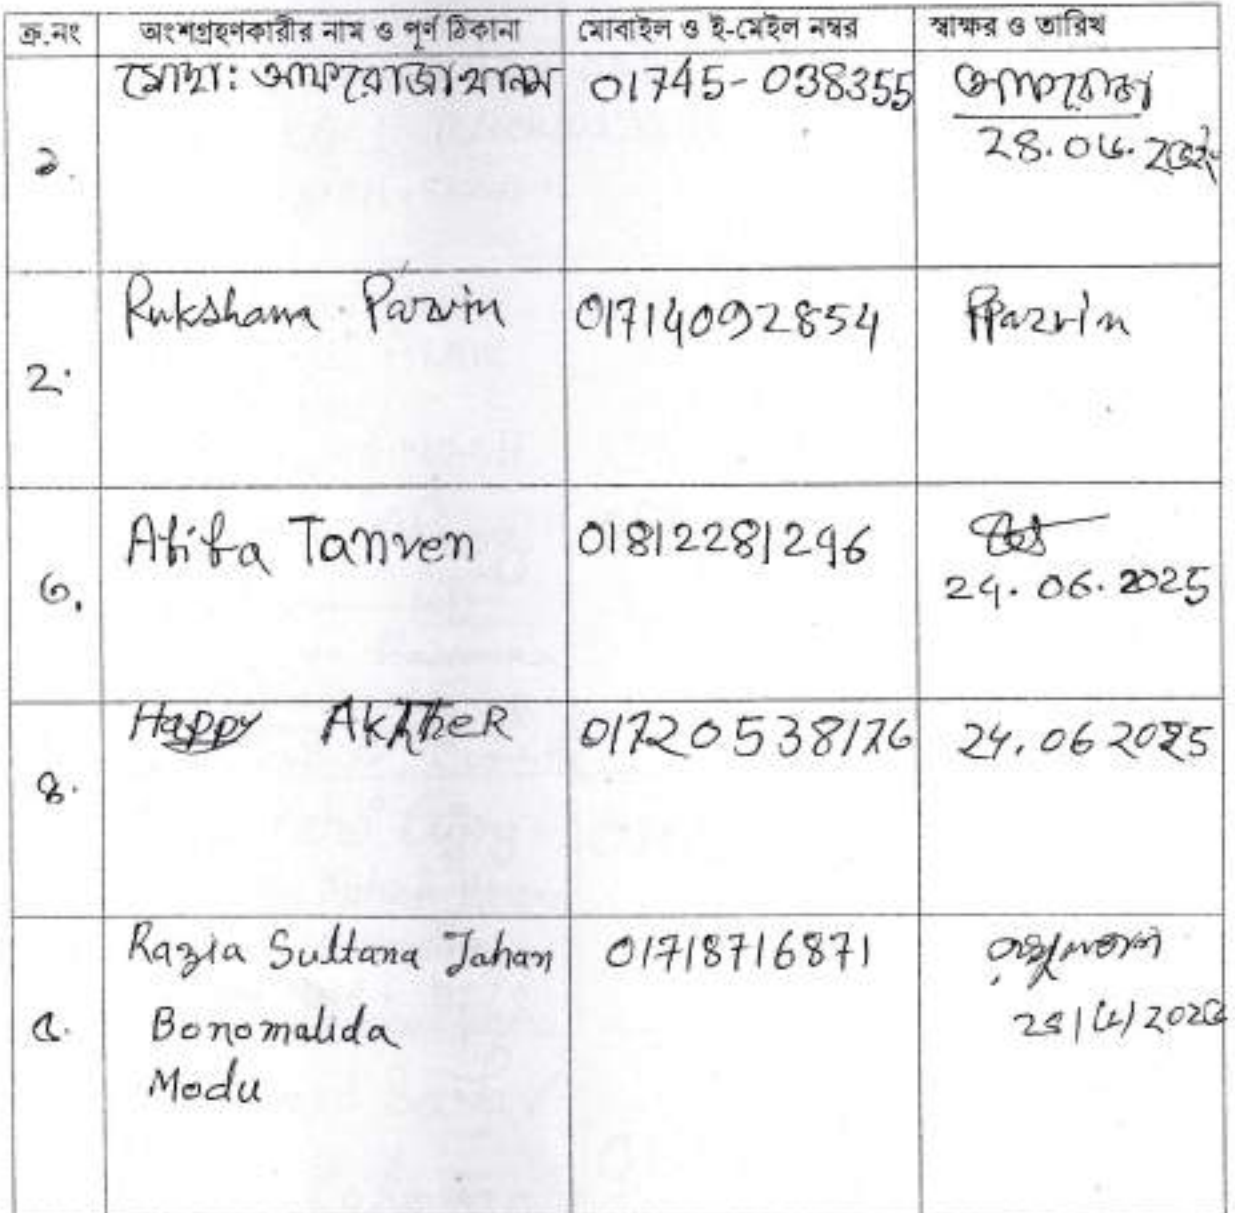 ক্র.নং অংশগ্রহণকারীর নাম ও পূর্ণ ঠিকানা মোবাইল ও ই-মেইল নম্বর স্বাক্ষর ও তারিখ
১. মোছা: আফরোজা খানম 01745-038355 আফরোজা
২. Rukshana Parvin 01714092854 RParvin
৩. Afifa Tanven 01812281296
24.06.2025
৪. Happy AkTheR 01720538176 24.06 2025
৫. Razia Sultana Jahan 01718716871
Bonomalida
Modu